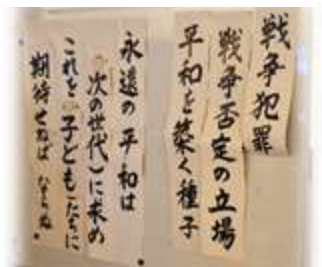 戦争犯罪
戦争否定の立場
平和を築く種子
永遠の平和は
次の世代に求め
これを子どもたちに
期待せねばならぬ